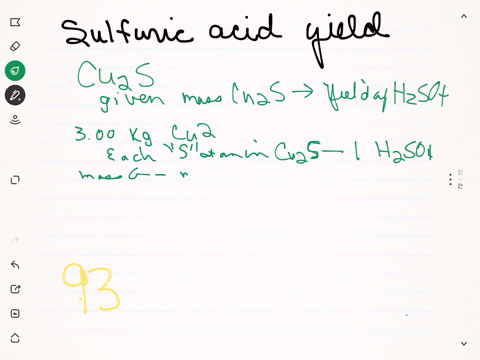 Sulfuric acid yield
Cu2S
given mass Cu2S → Yield of H2SO4
3.00 Kg Cu2
Each "S" atom in Cu2S — 1 H2SO4
mass
93
72 / 72